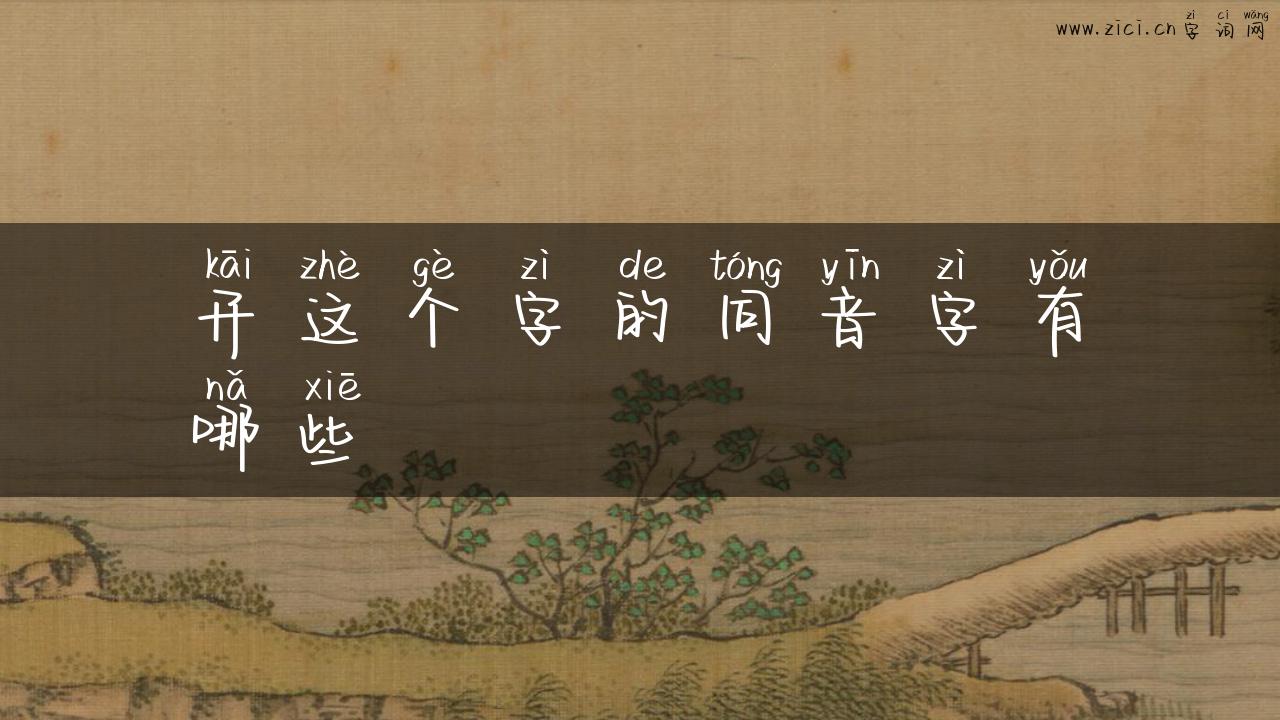 zì cí wǎng
www.zici.cn 字词网
kāi zhè gè zì de tóng yīn zì yǒu
开这个字的同音字有
nǎ xiē
哪些